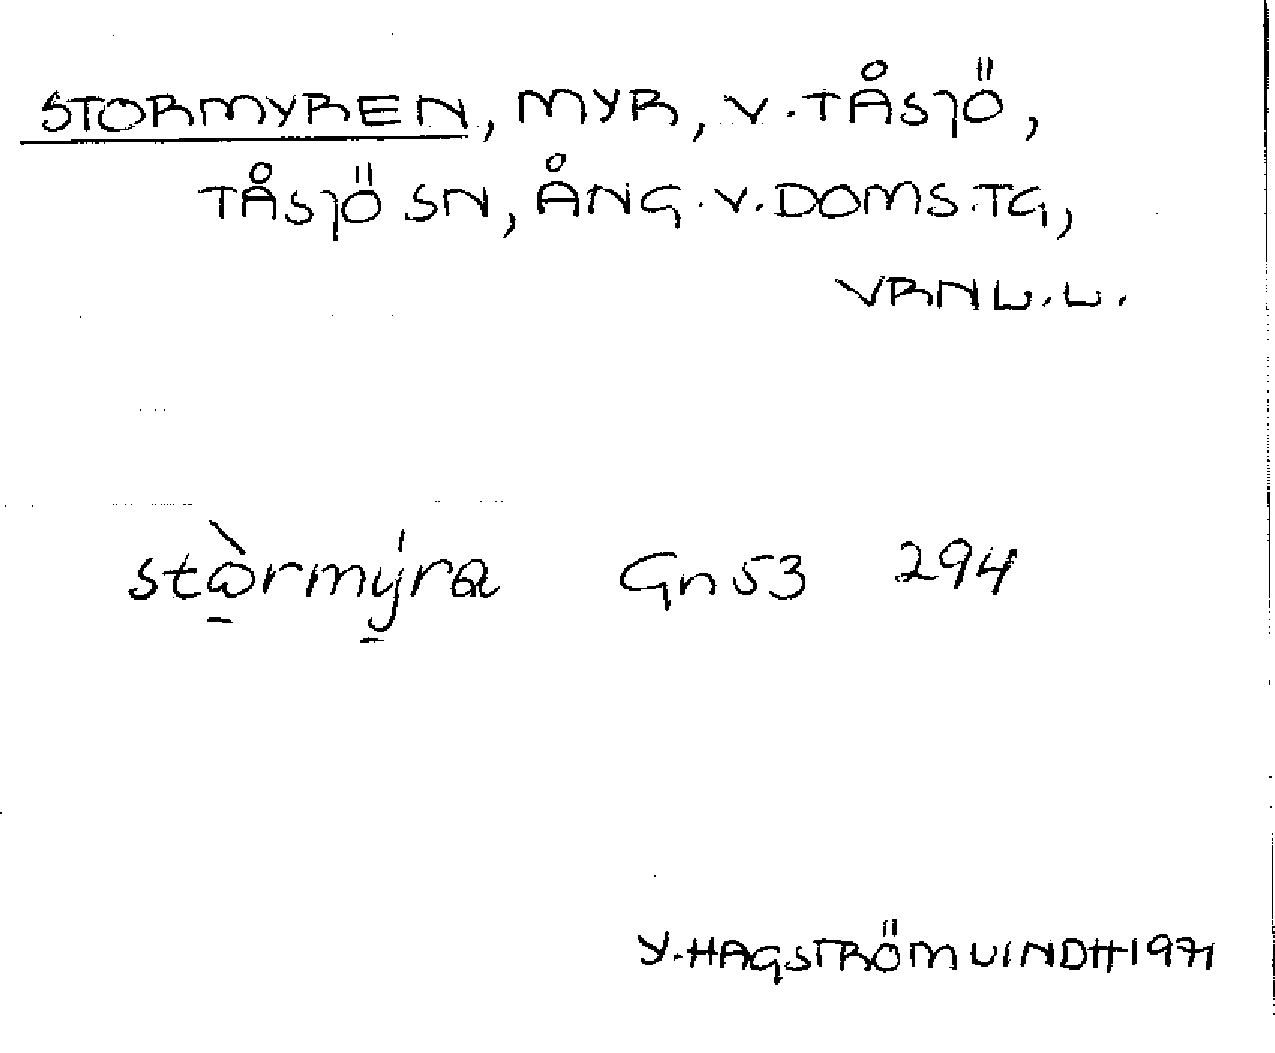 STORMYREN, MYR, V. TÅSJÖ,
TÅSJÖ SN, ÅNG. V. DOMS. TG,
VRNL.L.
stòrmýra Gn53 294
Y. HAGSTRÖM LINDH 1971